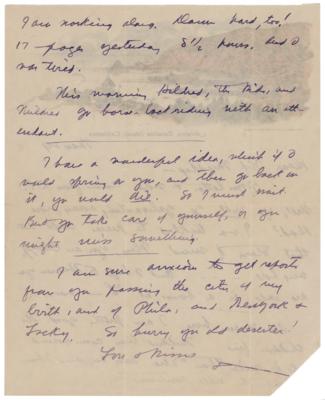 I am working along. Damn hard, too!
17 pages yesterday 8 1/2 hours. And I
was tired.
This morning Hildred, the kids, and
Mildred go horse-back riding with an att-
endant.
I have a wonderful idea, which if I
would spring on you, and then go back on
it, you would die. So I must wait.
But you take care of yourself, or you
might miss something.
I am sure anxious to get reports
from you passing the city of my
birth, and of Phila, and Newyork &
Jacky. So hurry you old deserter!
Love & kisses